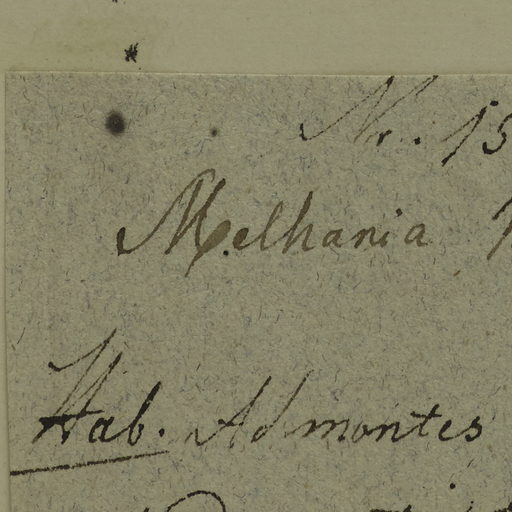 Nr. 15
Melhania
Hab. Ad montes